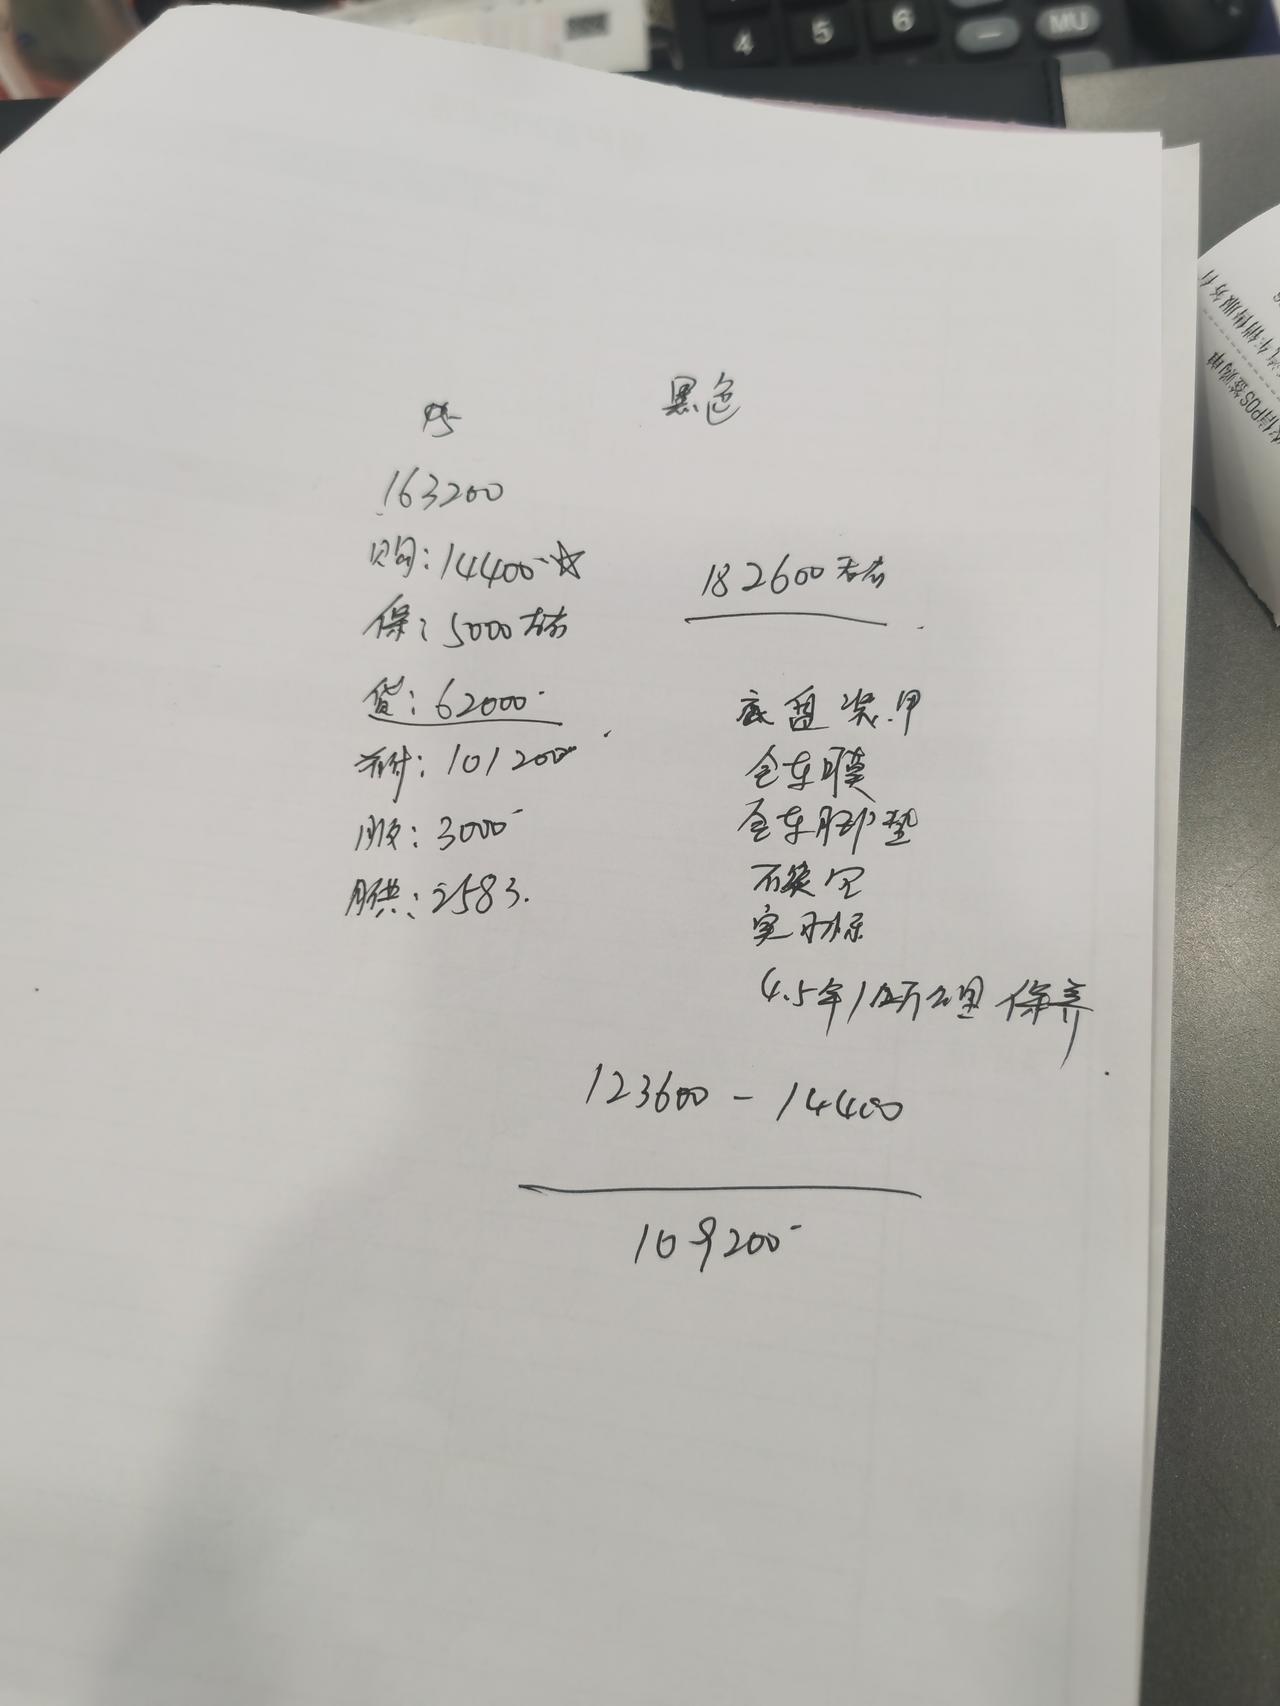 黑色
163200
购:14400☆
保:5000左右
182600左右
贷:62000
首付:101200
服:3000
月供:2583.
底盘装甲
全车膜
全车脚垫
石英宝
4.5年/ 万公里 保养
123600 - 14400
109200
4 5 6 - MU
汽车销售服务有
POS签购单